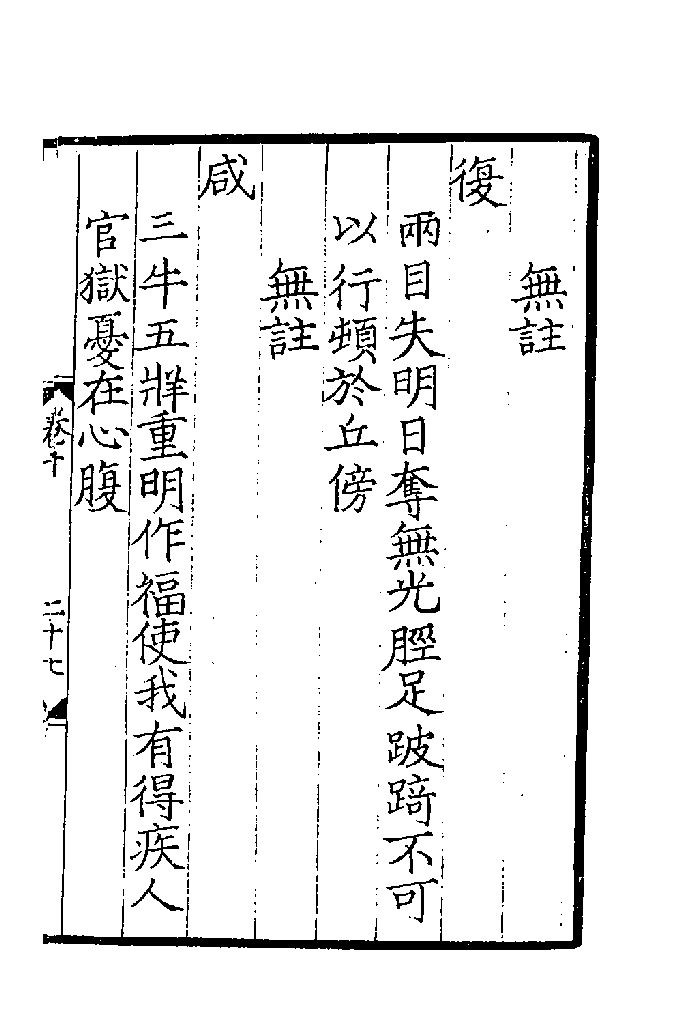 無註
復
兩目失明日奪無光脛足跛踦不可
以行頓於丘傍
無註
咸
三牛五牂重明作福使我有得疾人
官獄憂在心腹
卷十
二十七